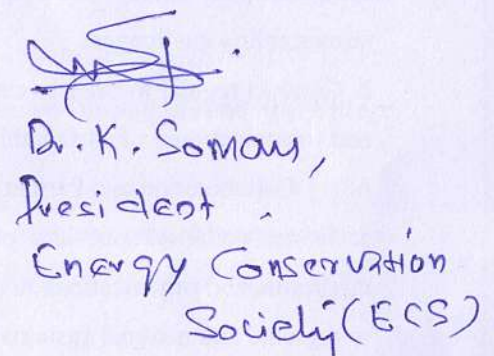 Dr. K. Soman,
President,
Energy Conservation
Society (ECS)